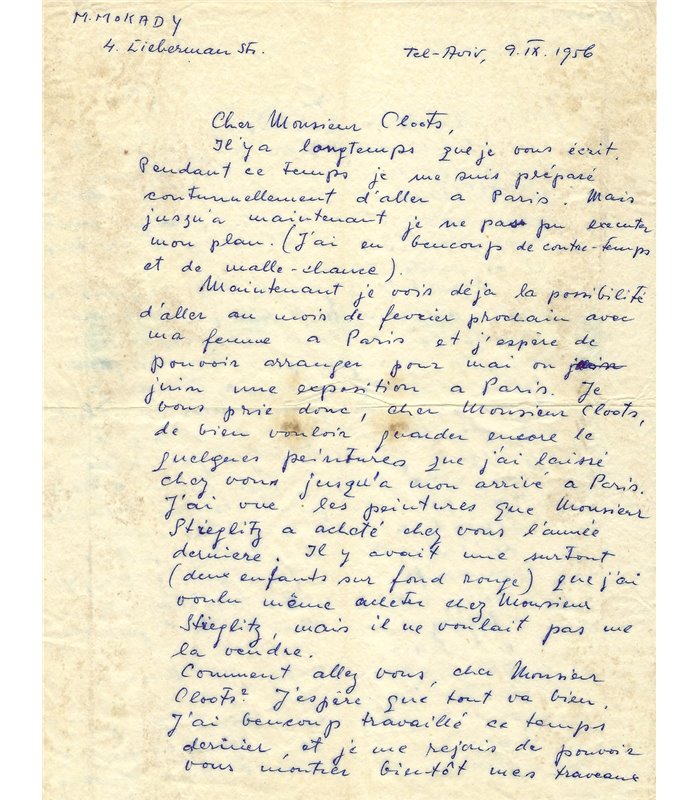 M. MOKADY
4. Lieberman Str.
Tel-Aviv, 9.IX.1956
Cher Monsieur Cloots,
Il'y a longtemps que je vous écrit.
Pendant ce temps je me suis préparé
contunnellement d'aller a Paris. Mais
jusqu'a maintenant je ne pas pu executer
mon plan. (J'ai eu beaucoups de contre-temps
et de malle-chance).
Maintenant je vois déja la possibilité
d'aller au mois de fevrier prochain avec
ma femme a Paris et j'espère de
pouvoir arranger pour mai ou juin
juin une exposition a Paris. Je
vous prie donc, cher Monsieur Cloots,
de bien vouloir guarder encore le
quelques peintures que j'ai laissé
chez vous jusqu'a mon arrivé a Paris.
J'ai vue les peintures que Monsieur
Stieglitz a acheté chez vous l'année
derniere. Il y avait une surtout
(deux enfants sur fond rouge) que j'ai
voulu même acheter chez Monsieur
Stieglitz, mais il ne voulait pas me
la vendre.
Comment allez vous, cher Monsieur
Cloots? J'espère que tout va bien.
J'ai beucoup travaillé ce temps
dernier, et je me rejouis de pouvoir
vous montrer bientôt mes traveaux